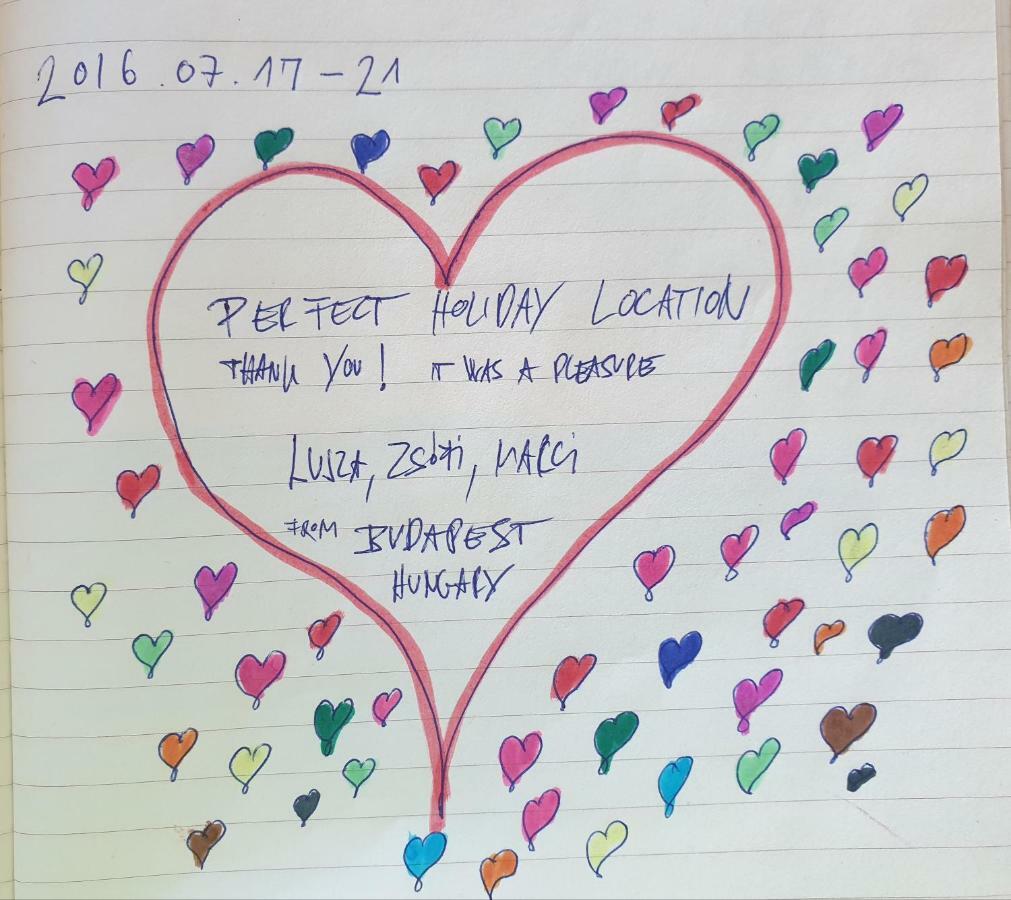 2016.07.17-21
PERFECT HOLIDAY LOCATION
THANK YOU! IT WAS A PLEASURE
LUSZA, ZSÓTI, MARCI
FROM BUDAPEST
HUNGARY